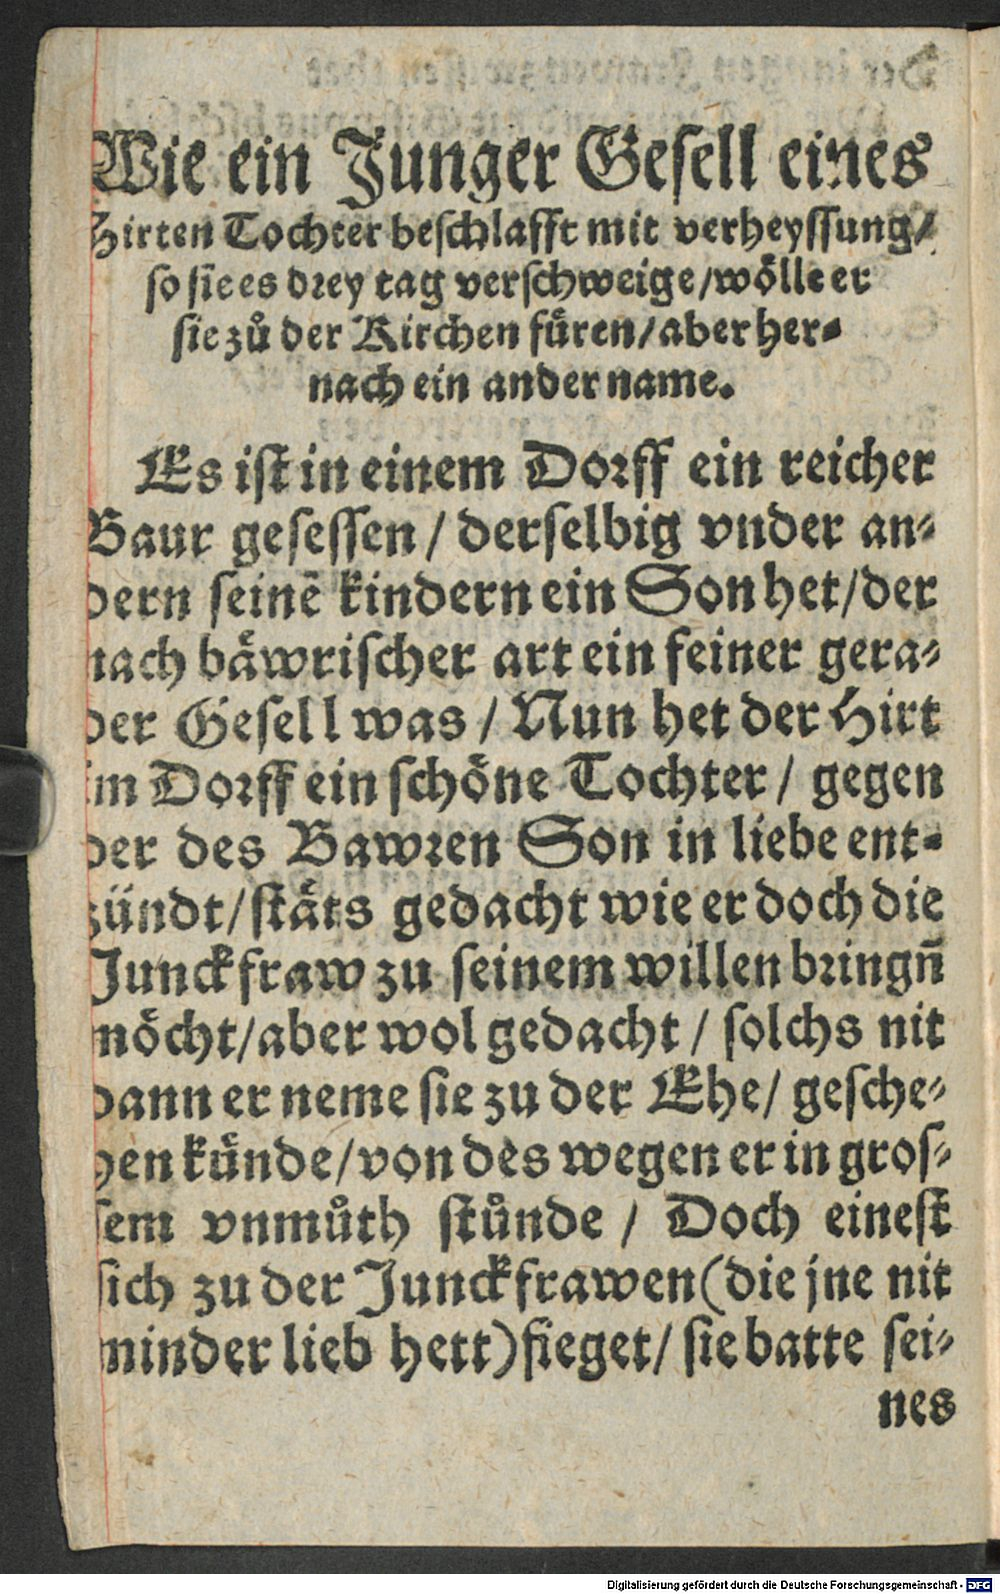 Wie ein Junger Gesell eines
Hirten Tochter beschlafft mit verheyssung/
so sie es drey tag verschweige/wölle er
sie zů der Kirchen füren/aber her-
nach ein ander name.
Es ist in einem Dorff ein reicher
Baur gesessen / derselbig vnder an-
dern seinē kindern ein Son het/der
nach bäwrischer art ein feiner gera-
der Gesell was / Nun het der Hirt
im Dorff ein schöne Tochter / gegen
der des Bawren Son in liebe ent-
zündt/stäts gedacht wie er doch die
Junckfraw zu seinem willen bringn̄
möcht/aber wol gedacht / solchs nit
dann er neme sie zu der Ehe/ gesche-
hen künde/von des wegen er in gros-
sem vnmůth stůnde / Doch einest
sich zu der Junckfrawen(die jne nit
minder lieb hett)fieget/ sie batte sei-
nes
Digitalisierung gefördert durch die Deutsche Forschungsgemeinschaft - DFG